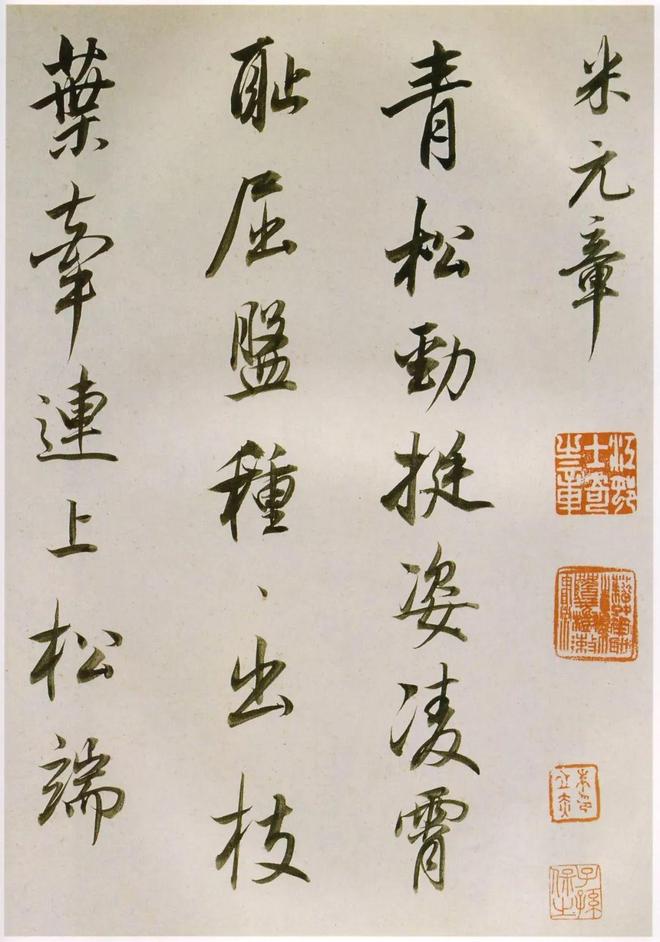 米元章
青松勁挺姿凌霄
恥屈盤種、出枝
葉牽連上松端
子孫保之